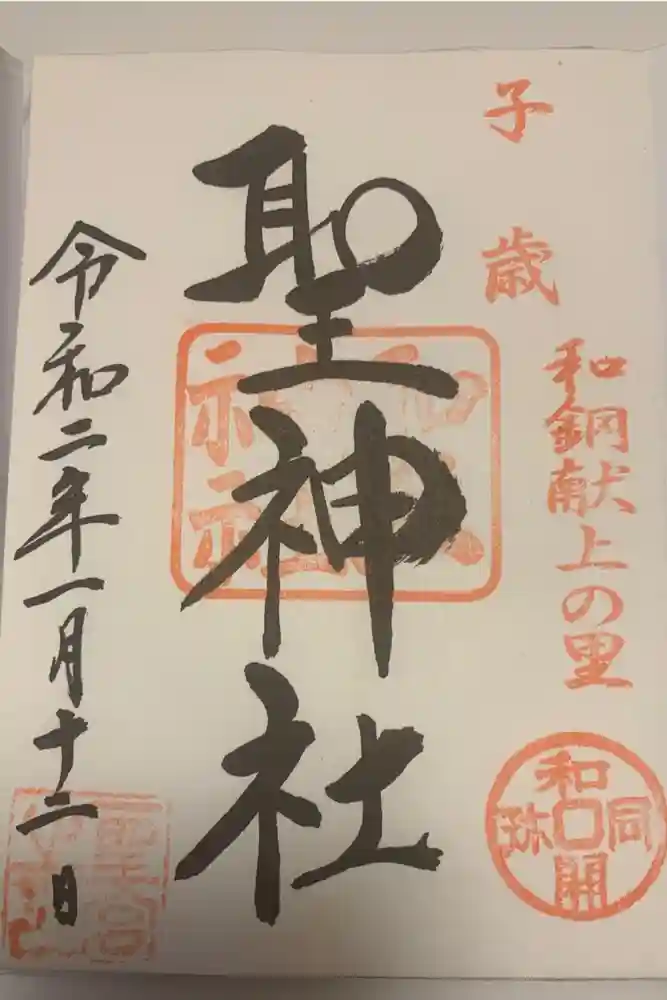 子歳
和銅献上の里
和同開珎
聖神社
令和二年一月十二日